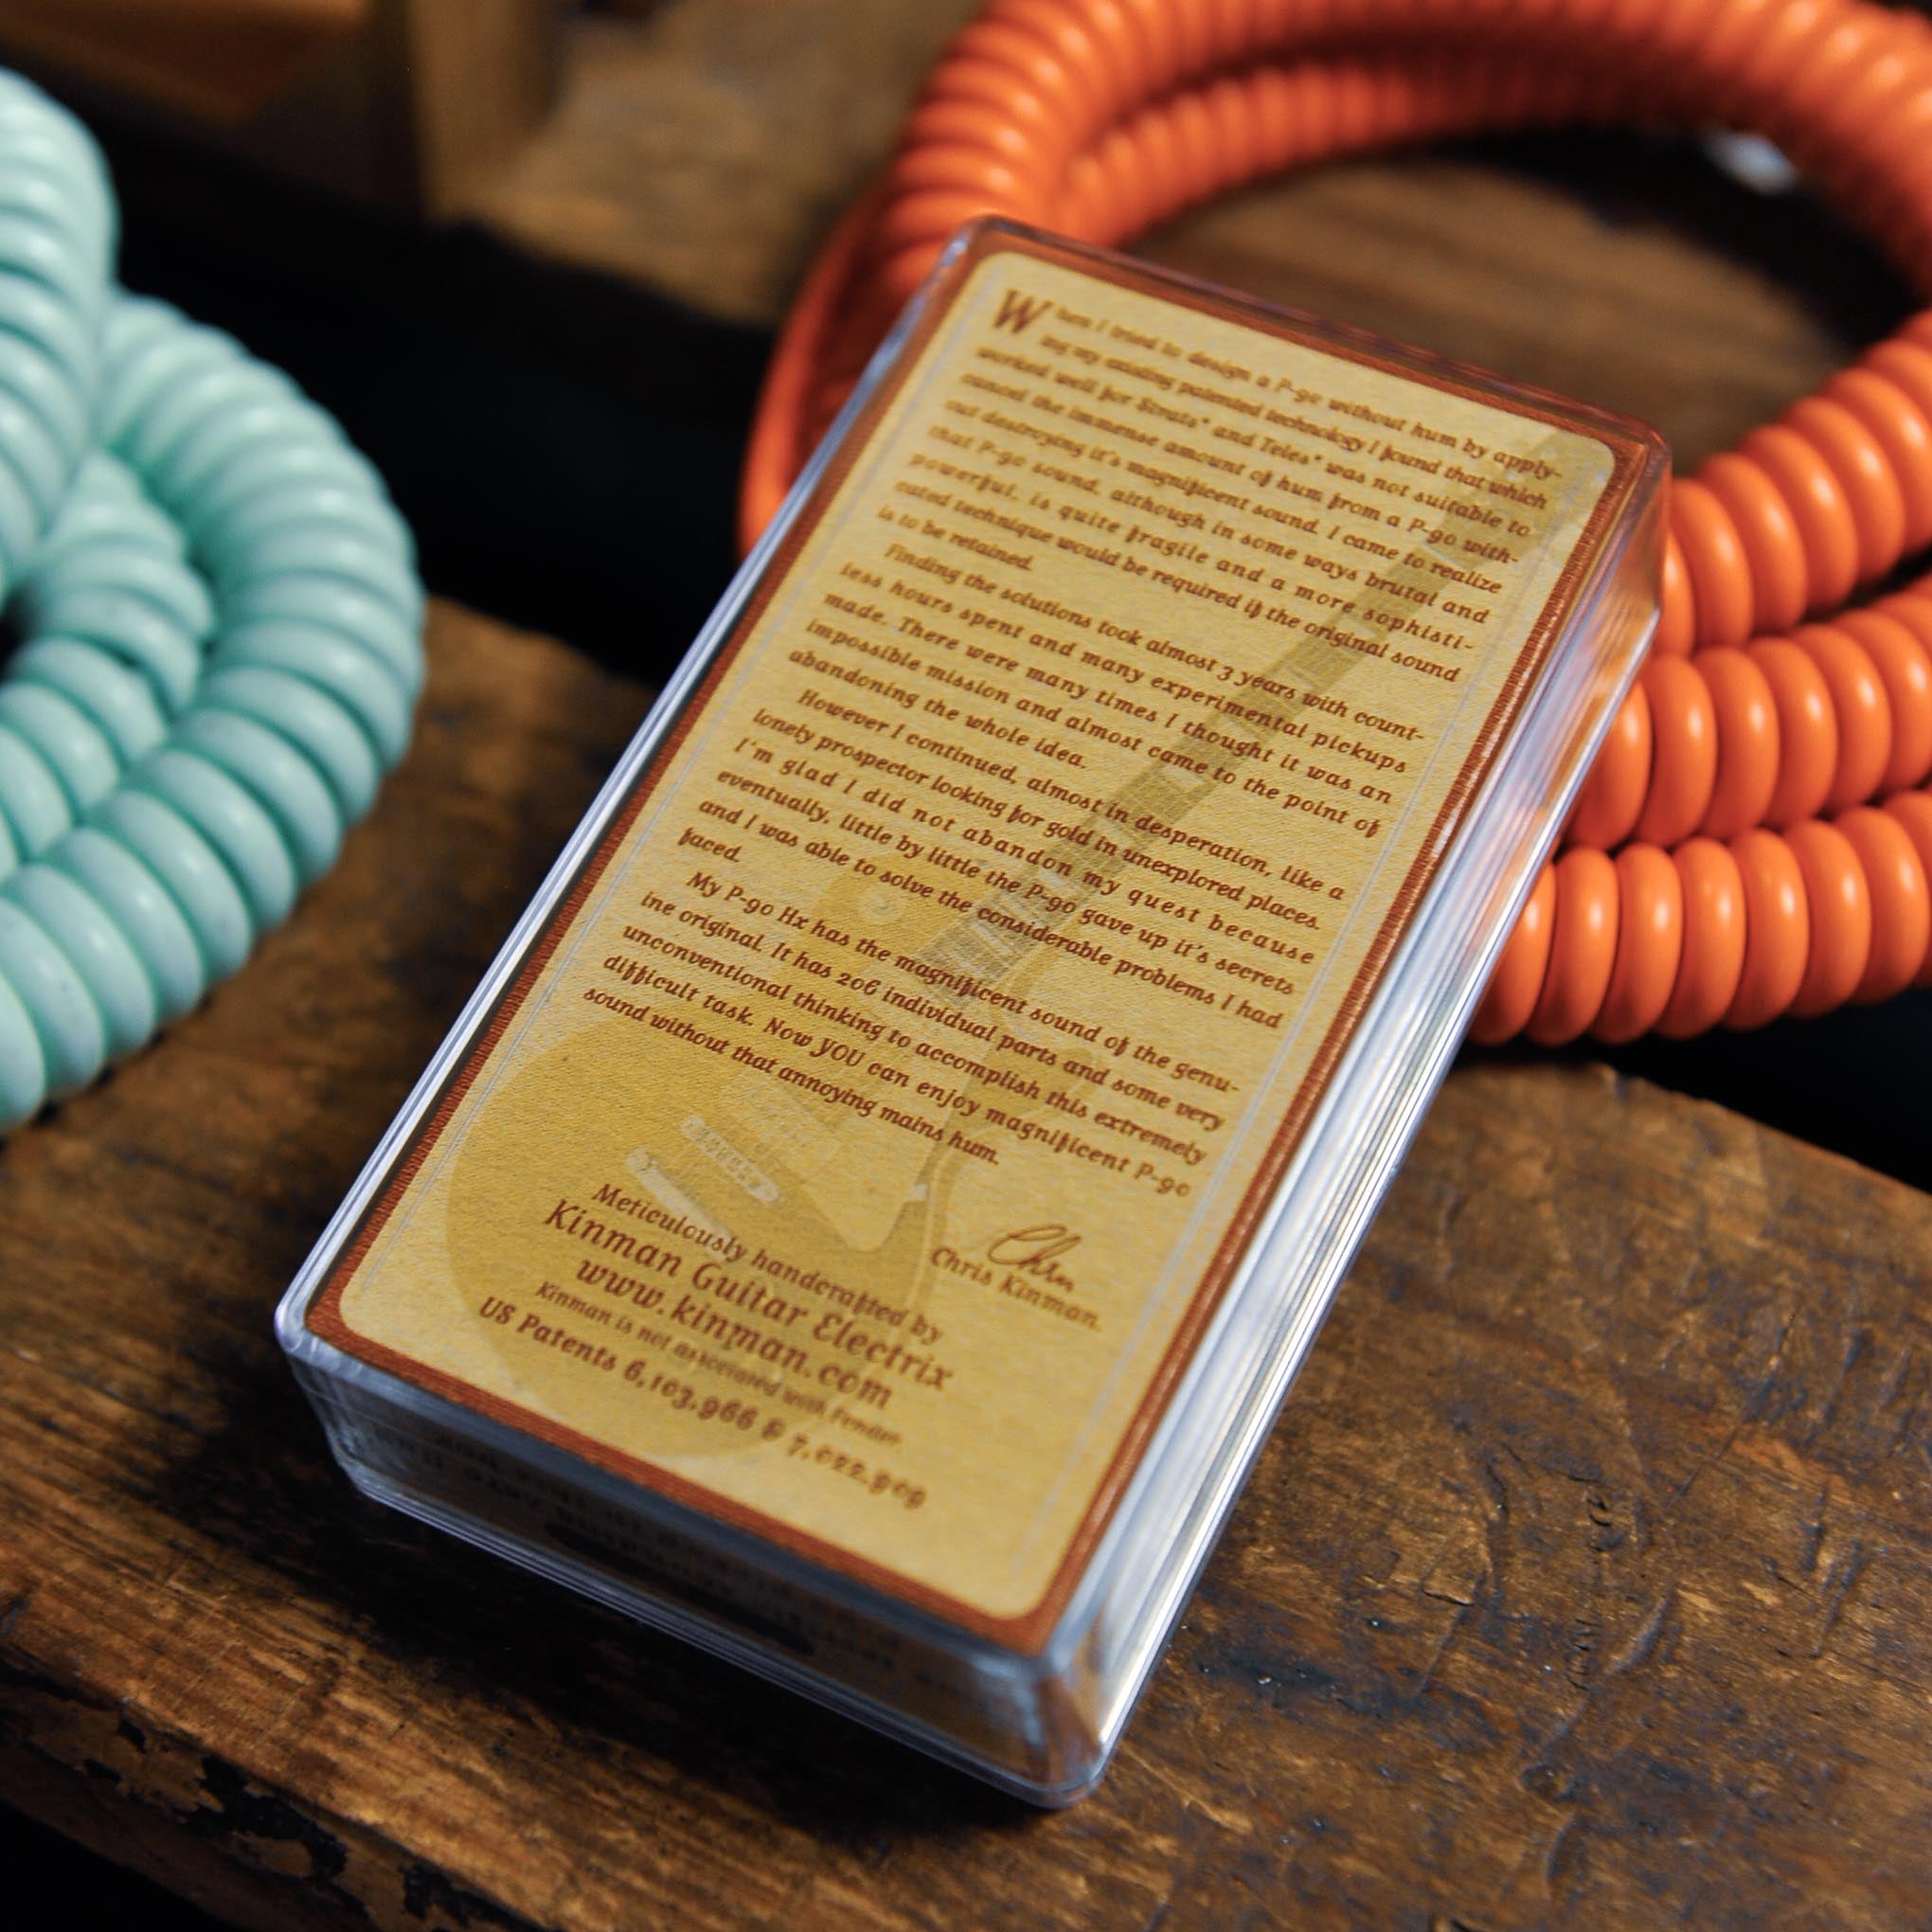 When I tried to design a P-90 without hum by apply-
ing my existing patented technology I found that which
worked well for Strats® and Teles® was not suitable to
cancel the immense amount of hum from a P-90 with-
out destroying it's magnificent sound. I came to realize
that P-90 sound, although in some ways brutal and
powerful, is quite fragile and a more sophisti-
cated technique would be required if the original sound
is to be retained.
Finding the solutions took almost 3 years with count-
less hours spent and many experimental pickups
made. There were many times I thought it was an
impossible mission and almost came to the point of
abandoning the whole idea.
However I continued, almost in desperation, like a
lonely prospector looking for gold in unexplored places.
I'm glad I did not abandon my quest because
eventually, little by little the P-90 gave up it's secrets
and I was able to solve the considerable problems I had
faced.
My P-90 Hx has the magnificent sound of the genu-
ine original. It has 206 individual parts and some very
unconventional thinking to accomplish this extremely
difficult task. Now YOU can enjoy magnificent P-90
sound without that annoying mains hum.
Chris
Chris Kinman.
Meticulously handcrafted by
Kinman Guitar Electrix
www.kinman.com
Kinman is not associated with Fender.
US Patents 6,103,966 & 7,022,909